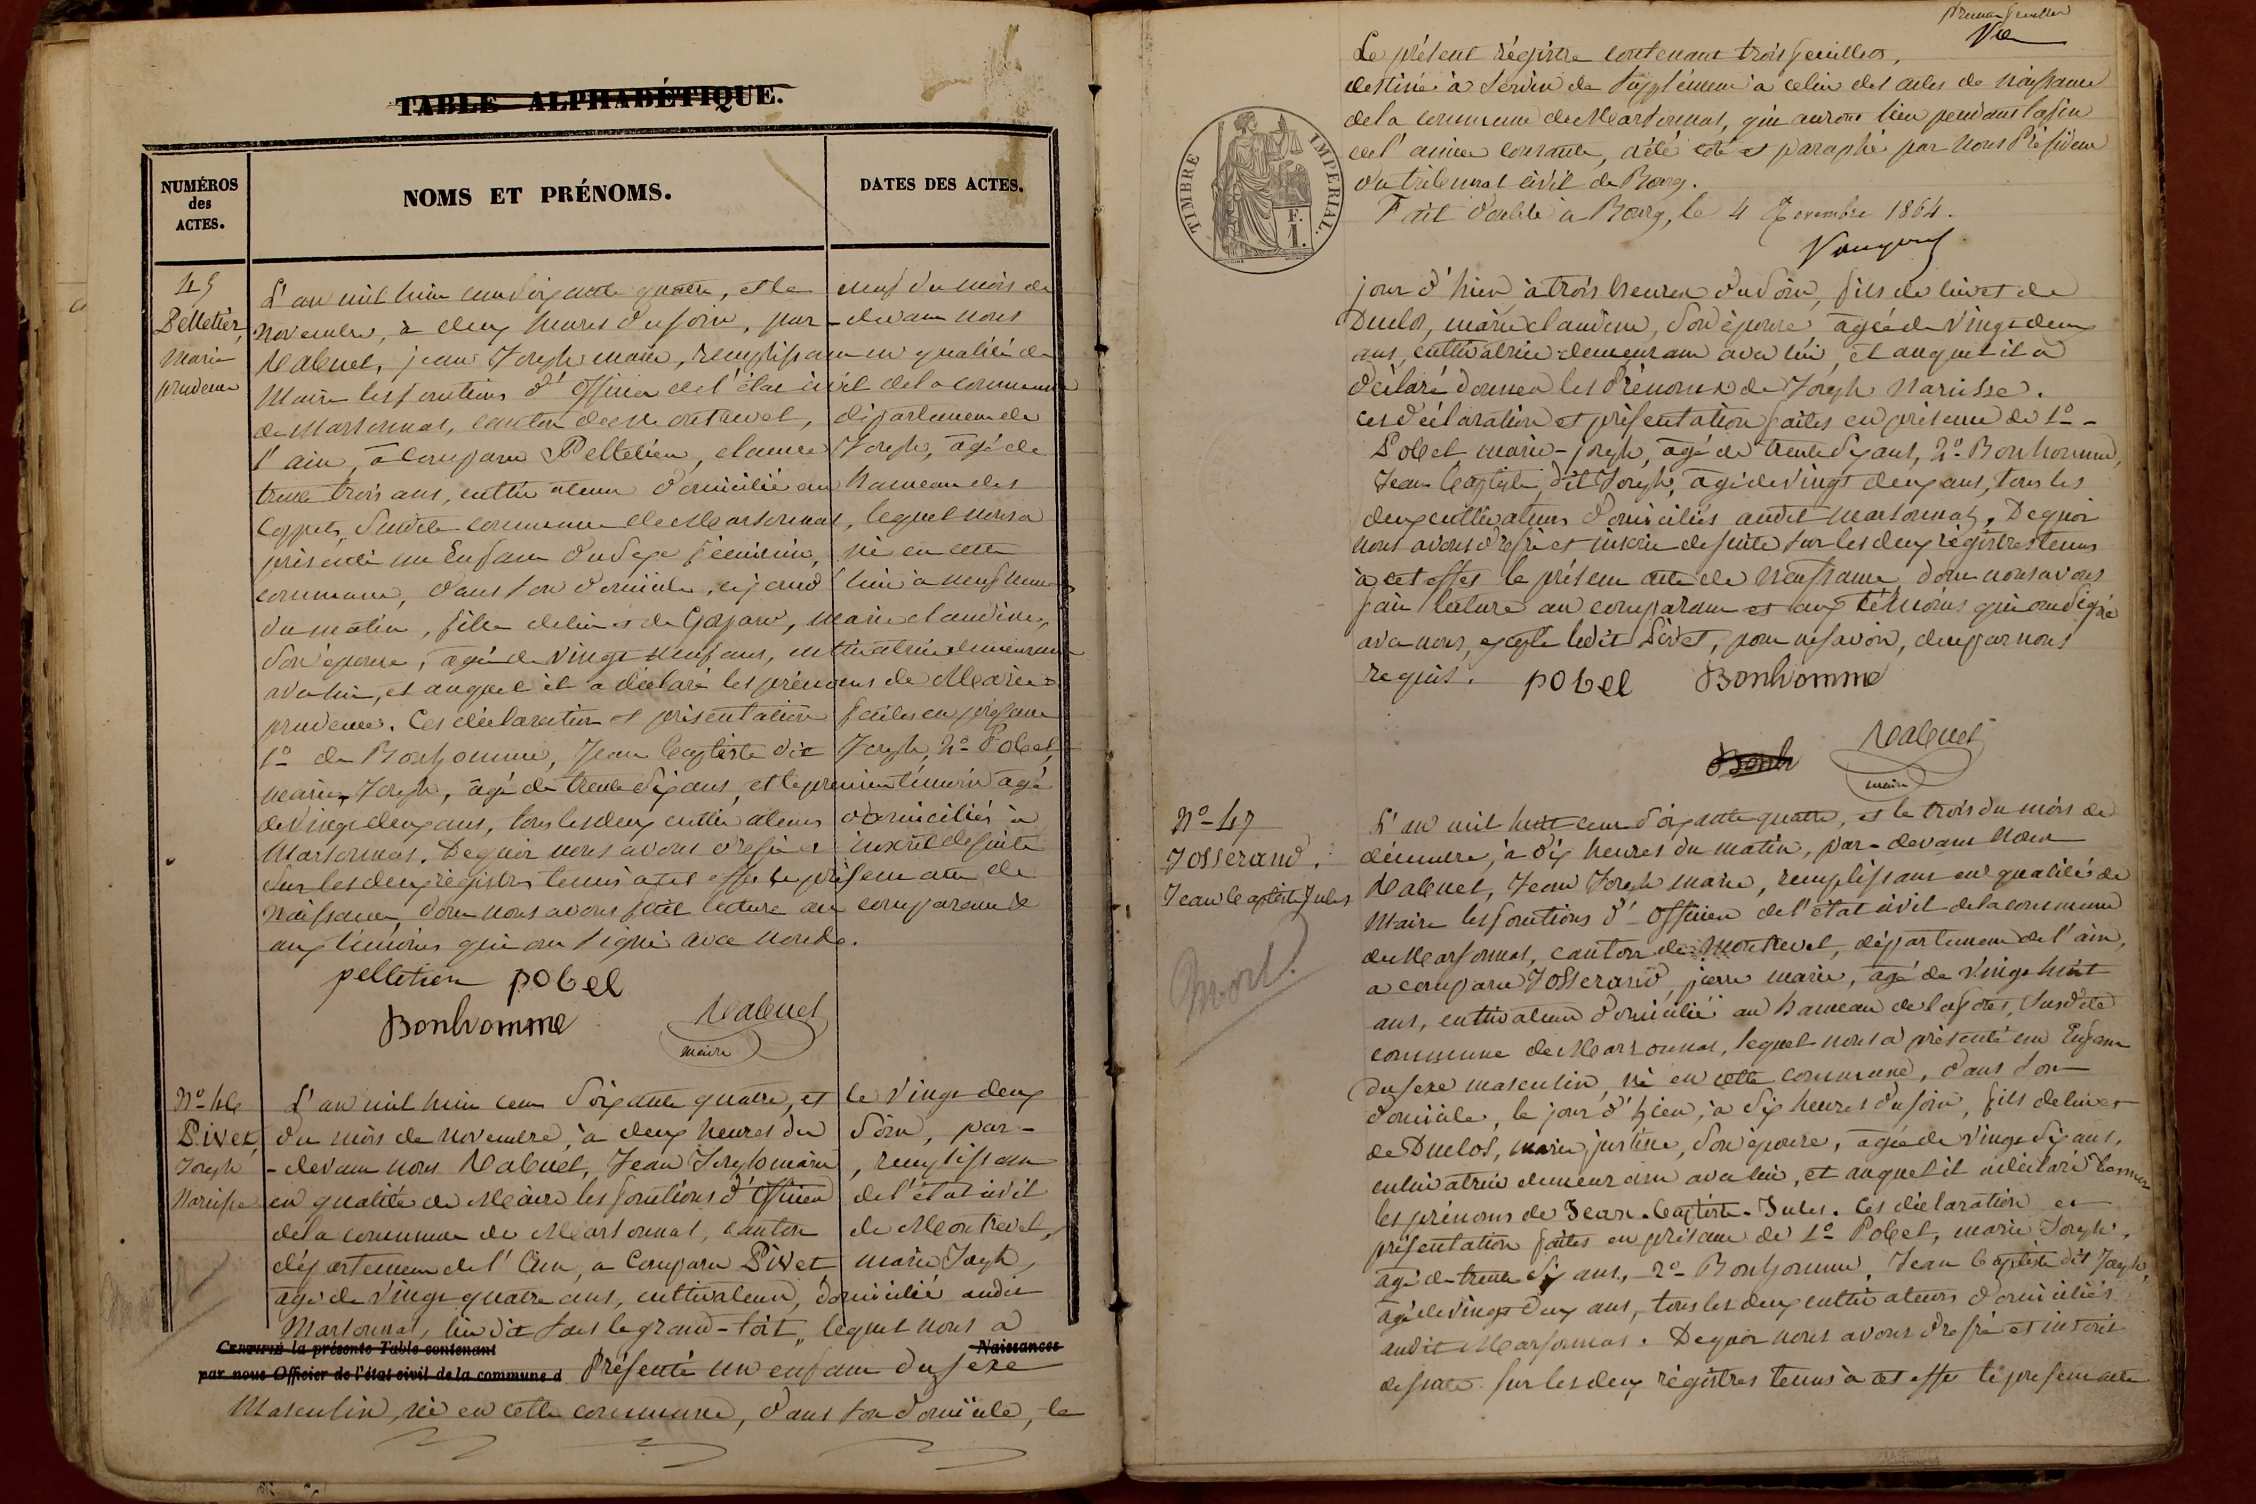 TABLE ALPHABÉTIQUE.
NUMÉROS
des
ACTES.
NOMS ET PRÉNOMS.
DATES DES ACTES.
45
Pelletier,
Marie
prudence
L'an mil huit cent soixante quatre, et le neuf du mois de
Novembre, à deux heures du soir, par-devant nous
Rabuel, jean Joseph marie, remplissant en qualité de
Maire les fonctions d'officier de l'état civil de la commune
de Marsonnas, canton de Montrevel, département de
l'ain, a comparu Pelletier, claude Joseph, âgé de
trente trois ans, cultivateur domicilié au hameau des
Coppets, susdite commune de Marsonnas, lequel nous a
présenté un Enfant du sexe féminin, né en cette
commune, dans son domicile, cejourd'hui à neuf heures
du matin, fille de lui et de Goyard, marie claudine,
son épouse, âgée de vingt neuf ans, cultivatrice demeurant
avec lui, et auquel il a déclaré les prénoms de Marie-
prudence. Ces déclaration et présentation faites en présence
1º de Bonhomme, Jean baptiste dit Joseph, 2º Pobel,
marie-Joseph, âgé de trente six ans, et le premier témoin âgé
de vingt deux ans, tous les deux cultivateurs domiciliés à
Marsonnas. De quoi nous avons dressé et inscrit de suite
sur les deux registres tenus à cet effet le présent acte de
Naissance, dont nous avons fait lecture au comparant &
aux témoins qui ont signé avec nous.
pelletier pobel
Bonhomme Rabuel
maire
Nº 46
Pivet,
Joseph
Narcisse
L'an mil huit cent soixante quatre, et le vingt deux
du mois de novembre, à deux heures du soir, par-
-devant nous Rabuel, Jean Joseph marie, remplissant
en qualité de Maire les fonctions d'officier de l'état civil
de la commune de Marsonnas, canton de Montrevel,
département de l'Ain, a comparu Pivet marie Joseph,
âgé de vingt quatre ans, cultivateur, domicilié audit
Marsonnas, lieu dit sous le grand-toit, lequel nous a
CERTIFIÉ la présente Table contenant Naissances
par nous Officier de l'état civil de la commune d Présenté un enfant du sexe
Masculin, né en cette commune, dans son domicile, le
premier feuillet
Le présent régistre contenant trois feuillets,
destiné à servir de supplément à celui des actes de naissance
de la commune de Marsonnas, qui auront lieu pendant la fin
de l'année courante, a été coté et paraphé par nous Président
du tribunal civil de Bourg.
Fait double à Bourg, le 4 Novembre 1864.
TIMBRE IMPERIAL.
F.
1.
jour d'hier à trois heures du soir, fils de lui et de
Duclos, marie claudine, son épouse âgée de vingt deux
ans, cultivatrice demeurant avec lui, et auquel il a
déclaré donner les Prénoms de Joseph Narcisse.
Ces déclaration et présentation faites en présence de 1º-
Pobel marie-joseph, âgé de trente six ans, 2º Bonhomme,
Jean baptiste, dit Joseph, âgé de vingt deux ans, tous les
deux cultivateurs domiciliés audit Marsonnas, De quoi
nous avons dressé et inscrit de suite sur les deux régistres tenus
à cet effet le présent acte de naissance, dont nous avons
fait lecture au comparant et aux témoins qui ont signé
avec nous, excepté ledit Pivet, pour ne savoir, de ce par nous
requis. pobel Bonhomme
Bonh Rabuel
maire
Nº 47
Josserand,
Jean baptiste Jules
Mort.
L'an mil huit cent soixante quatre, et le trois du mois de
décembre, à dix heures du matin, par-devant nous
Rabuel, Jean Joseph marie, remplissant en qualité de
Maire les fonctions d'officier de l'état civil de la commune
de Marsonnas, canton de Montrevel, département de l'ain,
a comparu Josserand, pierre marie, âgé de vingt huit
ans, cultivateur domicilié au hameau de la forêt, susdite
commune de Marsonnas, lequel nous a présenté un Enfant
du sexe masculin, né en cette commune, dans son
domicile, le jour d'hier, à dix heures du soir, fils de lui et
de Duclos, marie justine, son épouse, âgée de vingt six ans,
cultivatrice demeurant avec lui, et auquel il a déclaré donner
les prénoms de Jean-baptiste-Jules. Ces déclaration et
présentation faites en présence de 1º Pobel, marie Joseph,
âgé de trente six ans, 2º Bonhomme, Jean baptiste dit Joseph,
âgé de vingt deux ans, tous les deux cultivateurs domiciliés
audit Marsonnas. De quoi nous avons dressé et inscrit
de suite sur les deux régistres tenus à cet effet le présent acte